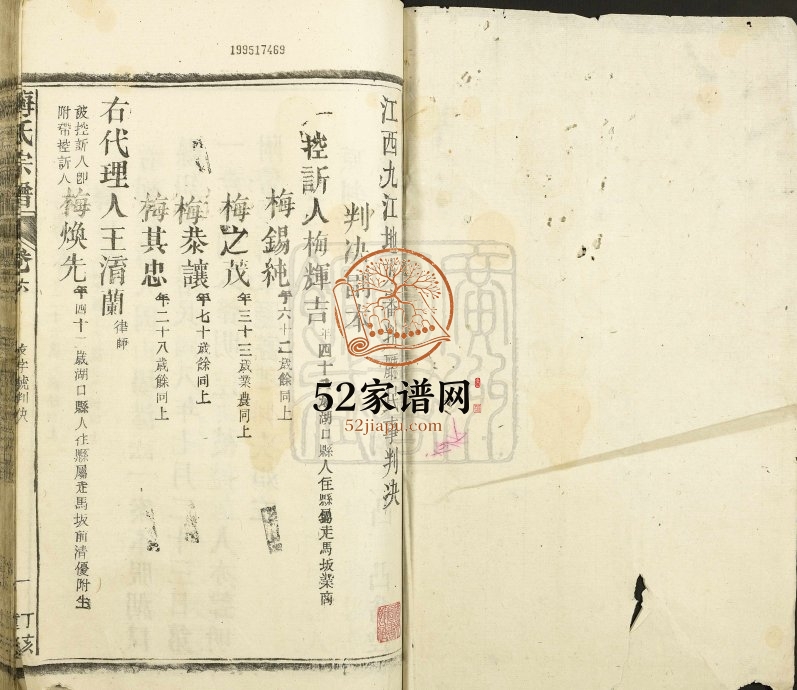 199517469
江西九江地 判决
判决
一控訴人梅輝吉 四十 湖口縣人住縣屬走馬坂業商
梅錫純 年六十二歲餘同上
梅之茂 年三十三歲業農同上
梅恭讓 年七十歲餘同上
梅其忠 年二十八歲餘同上
右代理人王淯蘭 律師
被控訴人卽
附帶控訴人 梅煥先 年四十一歲湖口縣人住縣屬走馬坂前清優附生
梅氏宗譜 卷六 判决 一
52家谱网
52jiapu.com